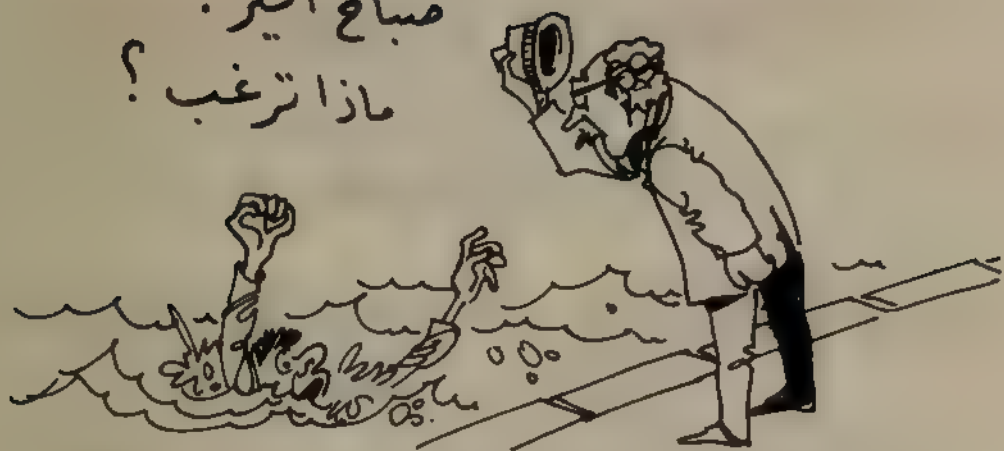 صباح الخير .
ماذا ترغب ؟